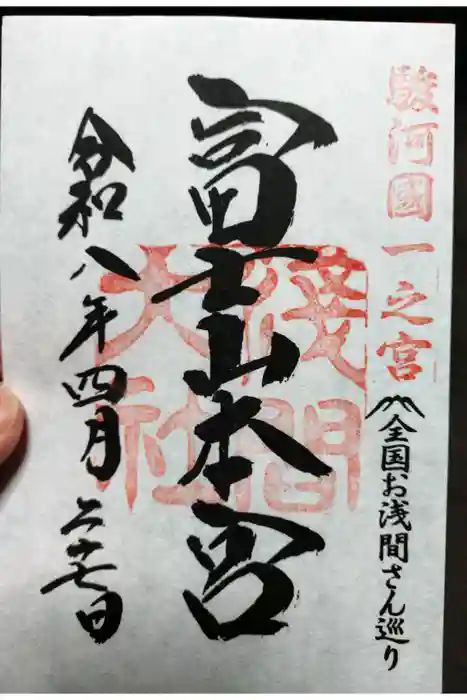 駿河國一之宮
全国お浅間さん巡り
富士山本宮
淺間
大社
令和八年四月二十七日